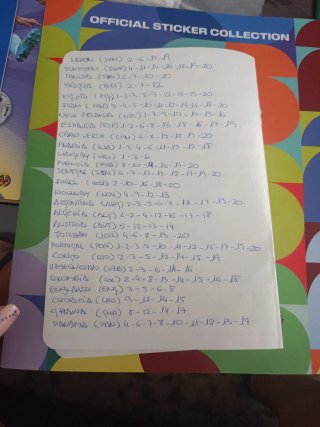 OFFICIAL STICKER COLLECTION
JAPON (JPN) 2-6-15-19
TUNISIA (TUN) 6-7-10-20
BELGICA (BEL) 2-7-12
EGIPTO (EGY) 1-2-3-5-7-12-15-18-20
IRAN (IRN) 3-4-5-10-11-12-13-16-18-20
NEW ZELANDA (NZL) 1-7-9-10-14-15-16
ESPAÑA (ESP) 1-2-6-8-13-15-16-17-19
CABO VERDE (CPV) 2-8-13-15-18-20
ARABIA (KSA) 1-3-4-6-11-13-15-18
URUGUAY (URU) 1-3-6
FRANCIA (FRA) 8-10-14-16-19-20
SENEGAL (SEN) 6-7-11-13-15-17-19-20
IRAK (IRQ) 2-10-16-18-20
NORUEGA (NOR) 4-9-12-13
ARGENTINA (ARG) 2-3-5-6-7-12-17-19-20
ALGERIA (ALG) 1-2-4-12-16-17-18
AUSTRIA (AUT) 5-12-13-14
JORDAN (JOR) 4-6-8-13-20
PORTUGAL (POR) 1-2-3-5-10-11-12-15-17-19-20
CONGO (COD) 2-5-12-14-15-19
UZBEQUISTAN (UZB) 2-3-6-11-16
COLOMBIA (COL) 2-4-8-13-14-15-16-18
ENGLAND (ENG) 3-5-6-8
CROACIA (CRO) 9-11-14-15
GHANA (GHA) 8-12-14-17
PANAMA (PAN) 4-6-7-8-10-11-12-13-17